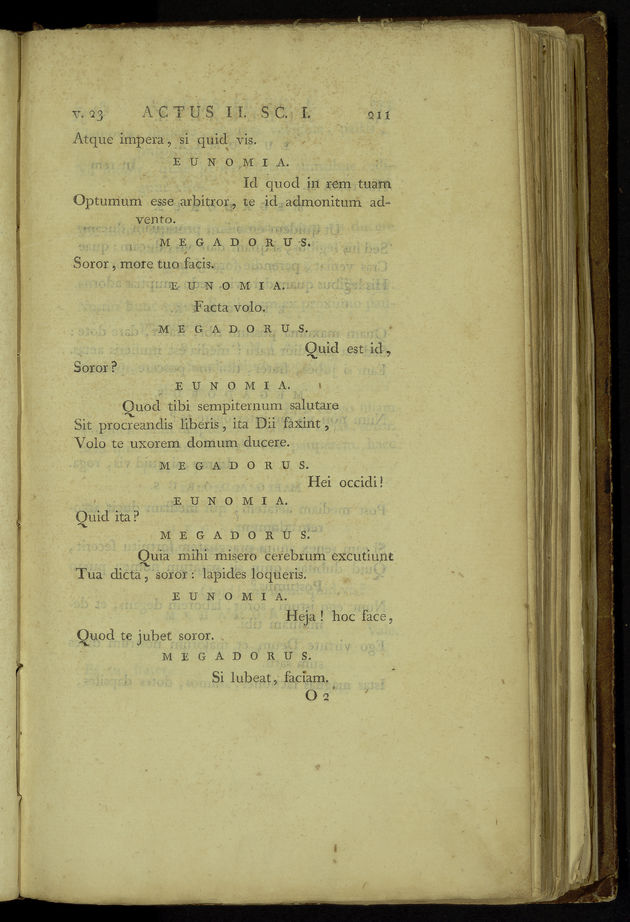 v. 23 ACTUS II. SC. I. 211
Atque impera, si quid vis.
EUNOMIA.
Id quod in rem tuam
Optumum esse arbitror, te id admonitum ad-
vento.
MEGADORUS.
Soror, more tuo facis.
EUNOMIA.
Facta volo.
MEGADORUS.
Quid est id,
Soror?
EUNOMIA.
Quod tibi sempiternum salutare
Sit procreandis liberis, ita Dii faxint,
Volo te uxorem domum ducere.
MEGADORUS.
Hei occidi!
EUNOMIA.
Quid ita?
MEGADORUS.
Quia mihi misero cerebrum excutiunt
Tua dicta, soror: lapides loqueris.
EUNOMIA.
Heja! hoc face,
Quod te jubet soror.
MEGADORUS.
Si lubeat, faciam.
O 2